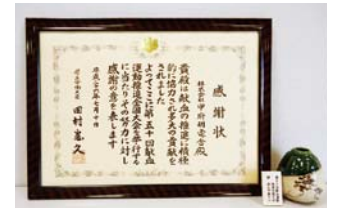 感謝状
株式会社中 研電 殿
貴殿は献血の推進に積極
的に協力され多大の貢献を
されました
よってここに第五十回献血
運動推進全国大会を挙行する
に当たりその努力に対し
感謝の意を表します
平成二十六年七月十日
厚生労働大臣
田村憲久